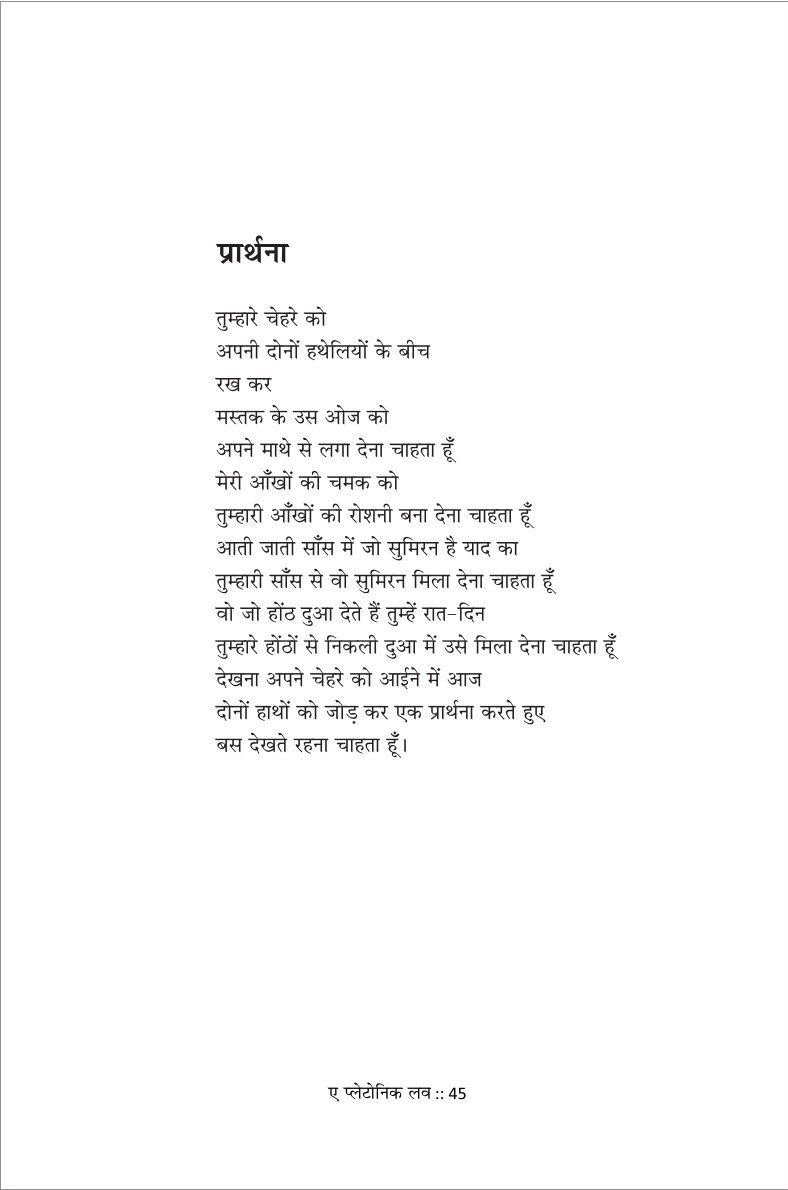 प्रार्थना
तुम्हारे चेहरे को
अपनी दोनों हथेलियों के बीच
रख कर
मस्तक के उस ओज को
अपने माथे से लगा देना चाहता हूँ
मेरी आँखों की चमक को
तुम्हारी आँखों की रोशनी बना देना चाहता हूँ
आती जाती साँस में जो सुमिरन है याद का
तुम्हारी साँस से वो सुमिरन मिला देना चाहता हूँ
वो जो होंठ दुआ देते हैं तुम्हें रात-दिन
तुम्हारे होंठों से निकली दुआ में उसे मिला देना चाहता हूँ
देखना अपने चेहरे को आईने में आज
दोनों हाथों को जोड़ कर एक प्रार्थना करते हुए
बस देखते रहना चाहता हूँ।
ए प्लेटोनिक लव :: 45